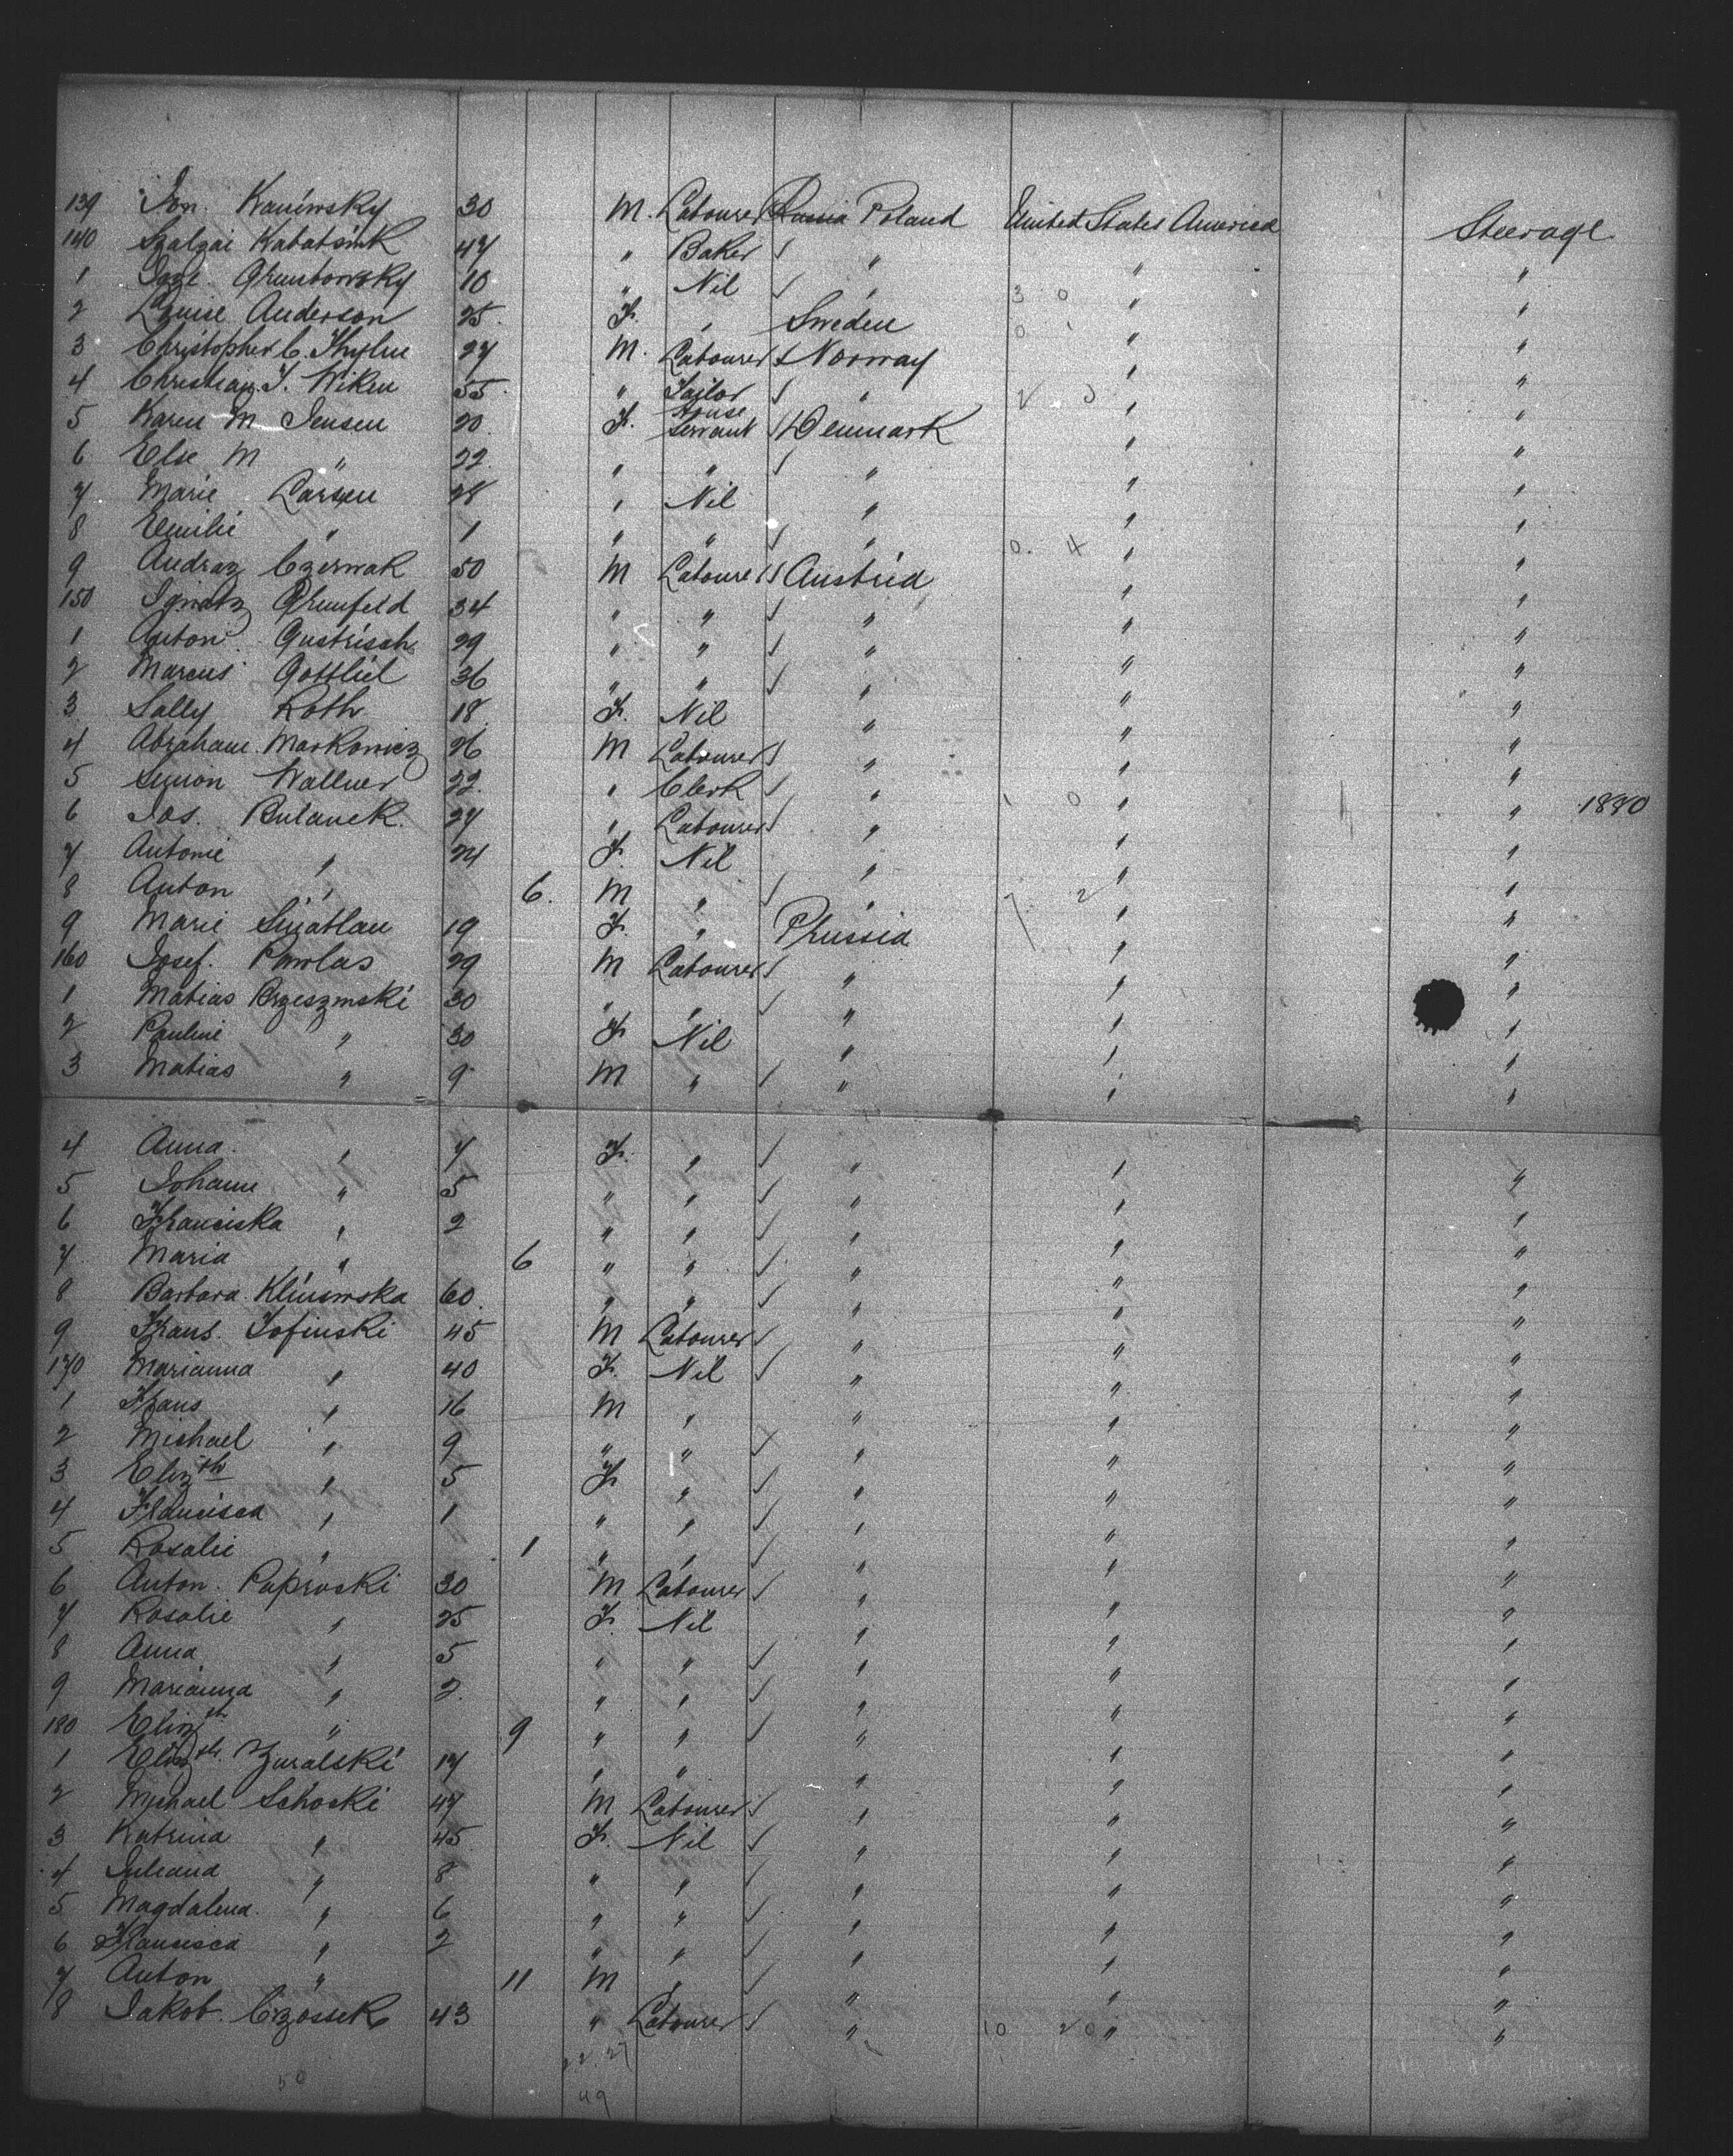 139 Jon. Kaniwsky 30 M. Labourer Russia Poland United States America Steerage
140 Szalzai Kabatsink 47 " Baker " " "
1 Ignz. Grumbowsky 10 " Nil " 3 0 " "
2 Louise Anderson 25. F. " Sweden 0 1 " "
3 Christopher C. Thylin 27 M. Labourer Norway " "
4 Christian J. Wiken 55. " Tailor " 2 0 " "
5 Karen M Jensen 20. F. House Servant Denmark " "
6 Else M " 22. " " " " "
7 Marie Larsen 28 " Nil " " "
8 Emilie " 1 " " " 0. 4 " "
9 Andraz Czerwak 50 M Labourer Austria " "
150 Ignatz Grunfeld 34 " " " " "
1 Anton Gustrisch 29 " " " " "
2 Marcus Gottliel 36 " " " " "
3 Sally Roth 18. F. Nil " " "
4 Abraham Markowicz 26 M Labourer " " "
5 Simon Wallner 22. " Clerk " " "
6 Jos. Bulanek 27 " Labourer " 1 0 " " 1880
7 Antonie " 24 F. Nil " " "
8 Anton " 6. M " " 7 2 " "
9 Marie Smatlau 19 F. " Prussia " "
160 Josef. Pawlas 29 M Labourer " " "
1 Matias Brzeszmski 30 " " " " "
2 Pauline " 30 F Nil " " "
3 Matias " 9 M " " " "
4 Anna " 7 F. " " " "
5 Johann " 5 " " " " "
6 Franciska " 2 " " " " "
7 Maria " 6 " " " " "
8 Barbara Klinowska 60. " " " " "
9 Frans. Jofinski 45 M Labourer " " "
170 Marianna " 40 F. Nil " " "
1 Frans " 16 M " " " "
2 Michael " 9 " " " " "
3 Elizth " 5 F. " " " "
4 Francisca " 1 " " " " "
5 Rosalie " 1 " " " " "
6 Anton. Paproski 30 M Labourer " " "
7 Rosalie " 25 F. Nil " " "
8 Anna " 5 " " " " "
9 Marianna " 2. " " " " "
180 Elizth " 9 " " " " "
1 Elizth. Zuralski 17 " " " " "
2 Michael Schoski 47 M Labourer " " "
3 Katrina " 45 F. Nil " " "
4 Juliana " 8 " " " " "
5 Magdalena. " 6 " " " " "
6 Francisca " 2 " " " " "
7 Anton " 11 M " " " "
8 Jakob. Czossek 43 " Labourer " 10 20 " "
22. 27
50 49